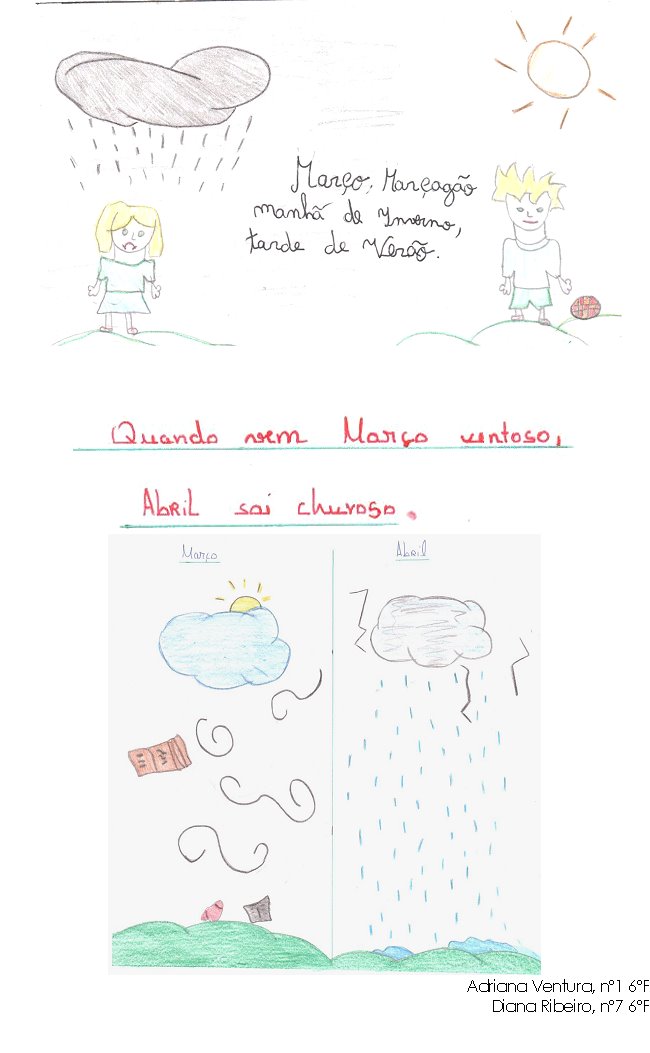 Março, Marçagão
manhã de Inverno,
tarde de Verão.
Quando vem Março ventoso,
Abril sai chuvoso.
Março
Abril
Adriana Ventura, nº1 6ºF
Diana Ribeiro, nº7 6ºF